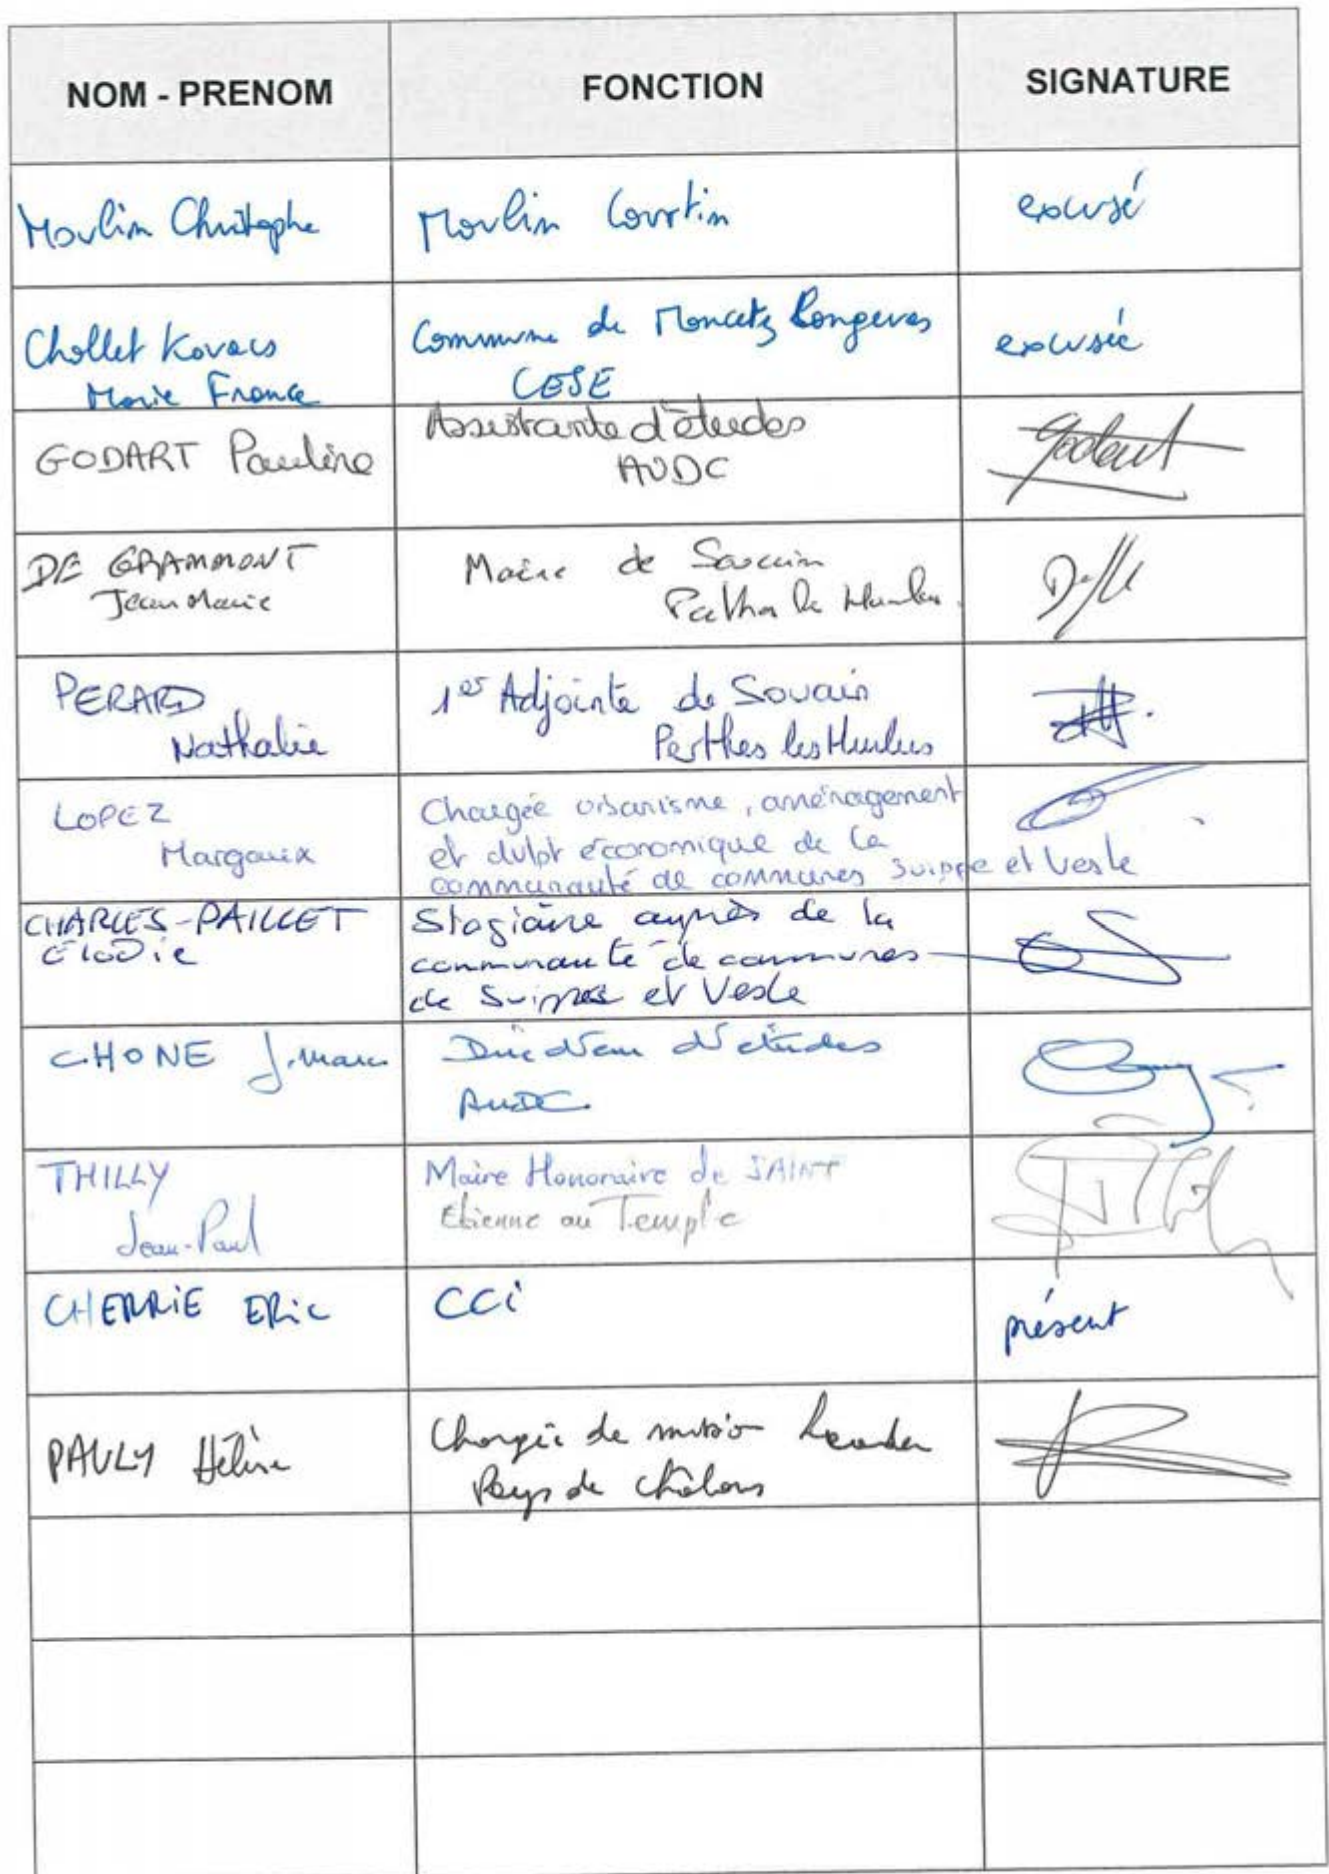 NOM - PRENOM FONCTION SIGNATURE
Moulin Christophe Moulin Courtin excusé
Chollet Kovacs Commune de Moncetz Longevas excusée
Marie France CESE
GODART Pauline Assistante d'études Godart
AUDC
DE GRAMMONT Maire de Souain
Jean Marie Perthes les Hurlus
PERARD 1er Adjointe de Souain
Nathalie Perthes les Hurlus
LOPEZ Chargée urbanisme, aménagement
Margaux et dvlpt économique de la
communauté de communes Suippe et Vesle
CHARLES-PAILLET Stagiaire auprès de la
Élodie communauté de communes
de Suippes et Vesle
CHONE J. Marc Directeur d'études
AUDC
THILLY Maire Honoraire de SAINT
Jean-Paul Etienne au Temple
CHERRIE ERic CCi présent
PAULY Hélène Chargée de mission Leader
Pays de Châlons